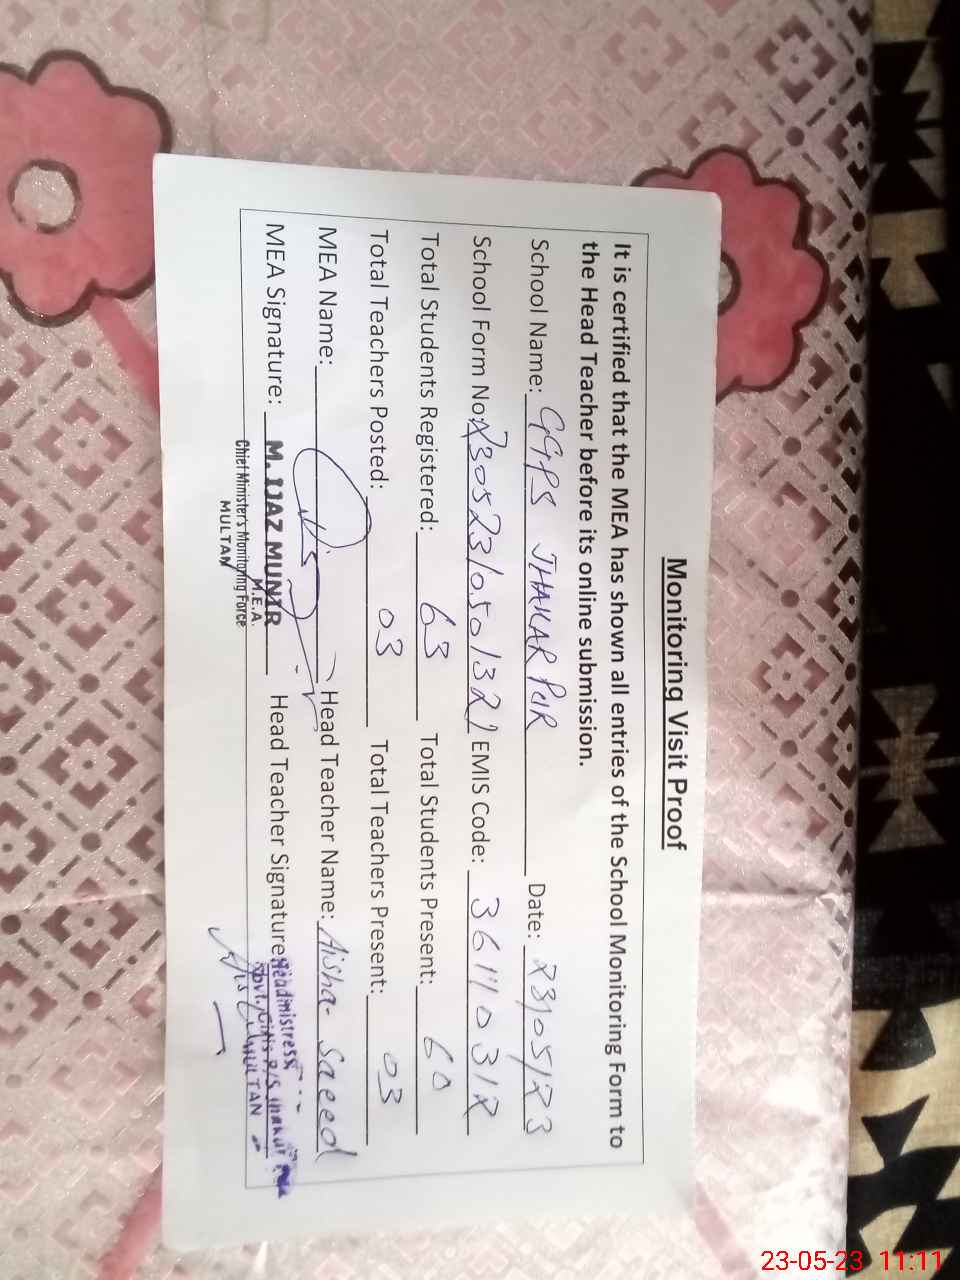 Monitoring Visit Proof
It is certified that the MEA has shown all entries of the School Monitoring Form to
the Head Teacher before its online submission.
School Name: GGPS JHAKAR PUR Date: 23/05/23
School Form No: 23052310501321 EMIS Code: 36110312
Total Students Registered: 63 Total Students Present: 60
Total Teachers Posted: 03 Total Teachers Present: 03
MEA Name: Head Teacher Name: Aisha Saeed
MEA Signature: M. IJAZ MUNIR Head Teacher Signature: Headmistress
M.E.A.
Chief Minister's Monitoring Force
MULTAN
Govt. Girls P/S
MULTAN
23-05-23 11:11